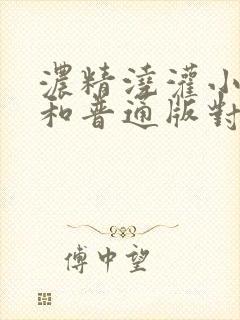 濃精澆灌小
和普通版對
傅中望